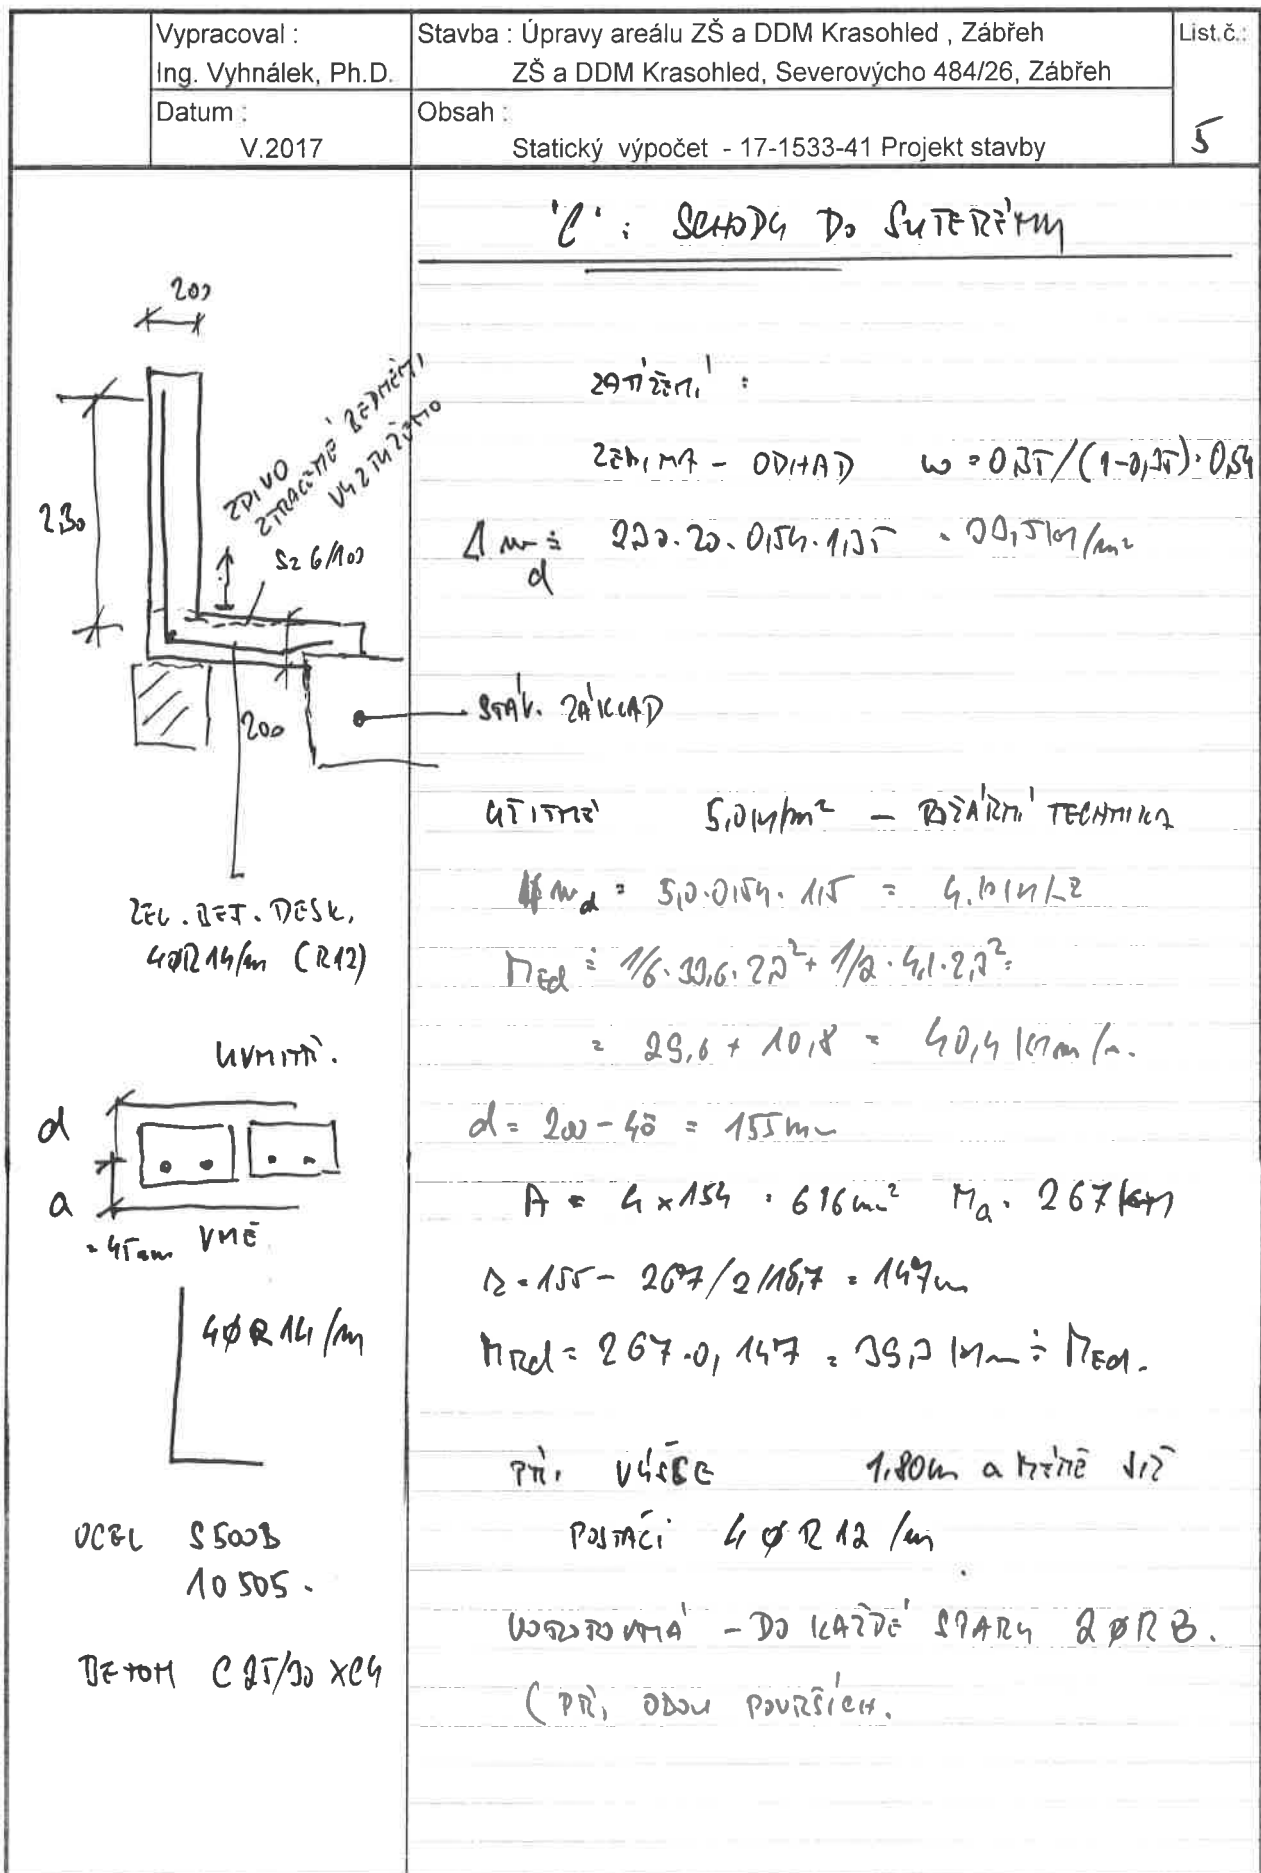 Vypracoval :
Ing. Vyhnálek, Ph.D.
Datum :
V.2017
Stavba : Úpravy areálu ZŠ a DDM Krasohled , Zábřeh
ZŠ a DDM Krasohled, Severovýcho 484/26, Zábřeh
Obsah :
Statický výpočet - 17-1533-41 Projekt stavby
List.č.:
5
'C' : SCHODY DO SUTERÉNU
200
2,30
ZDIVO
ZTRACENÉ BEDNĚNÍ
VYZTUŽENO
Sz 6/100
200
ŽEL. BET. DESK.
4ØR14/m (R12)
UVNITŘ.
d
a
= 45mm VNĚ
4ØR14/m
OCEL S500B
10 505.
BETON C 25/30 XC4
ZATÍŽENÍ :
ZEMINA - ODHAD w = 0,35/(1-0,35) . 0,54
2,30.20.0,54.1,35 = 33,5 kN/m²
STÁV. ZÁKLAD
UŽITNÉ 5,0 kN/m² - POŽÁRNÍ TECHNIKA
= 5,0.0,54.1,5 = 4,1
MEd = 1/6.33,6.2,3² + 1/2.4,1.2,3² =
= 29,6 + 10,8 = 40,4 kNm/m.
d = 200 - 45 = 155mm
A = 4 x 154 = 616 mm² Na = 267 kN
155 - 267/2/16,7 = 147m
MRd = 267.0,147 = 39,3 kNm ≐ MEd.
PŘI VÝŠCE 1,80m a MÉNĚ
POSTAČÍ 4 Ø R 12 /m
VODOROVNÁ - DO KAŽDÉ SPÁRY 2ØR8.
(PŘI OBOU POVRŠÍCH.